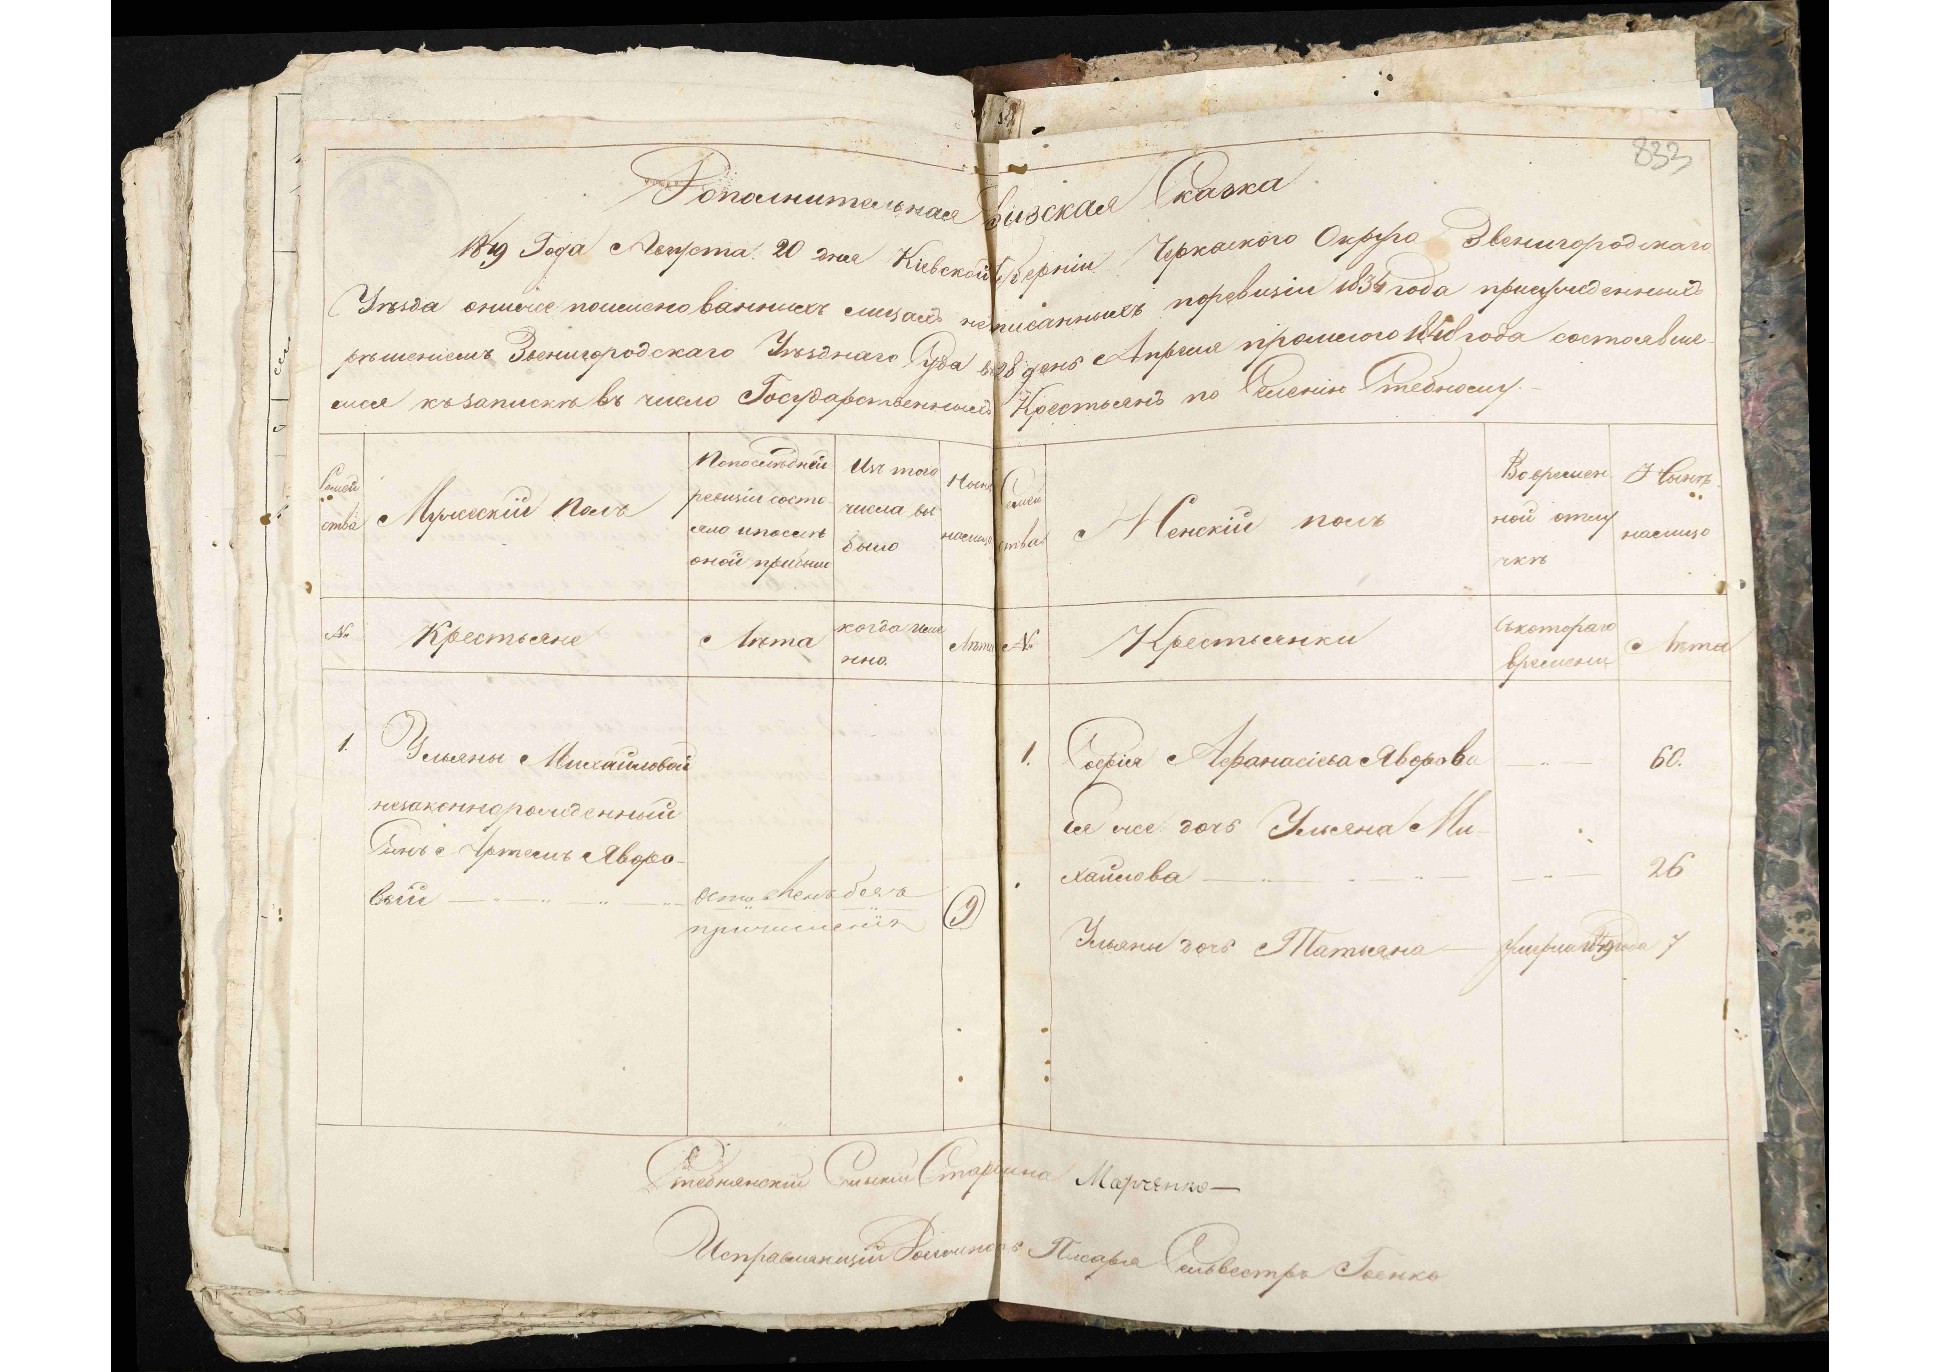 833
Дополнительная Ревизская Сказка
1849 Года Августа 20 дня Кіевской Губерніи Черкаского Округа Звенигородскаго
Уѣзда о ниже поименованныхъ лицахъ не писанныхъ по ревизіи 1834 года присужденныхъ
рѣшеніемъ Звенигородскаго Уѣзднаго Суда въ 28 день Апреля прошлого 1848 года состоявше-
мся къ запискѣ въ число Государственныхъ Крестьянъ по Селенію Стебному.
Семей
ства
Мужескій полъ
По последней
ревизіи состо
яло и после
оной прибыло
Изъ того
числа вы
было
Ныне
налицо
Семей
ства
Женскій полъ
Во времен
ной отлу
чкѣ
Нынѣ
налицо
№
Крестьяне
Лѣта
когда име
нно.
Лѣта
№
Крестьянки
съ котораго
времени
Лѣта
1.
Ульяны Михайловой
незаконнорожденный
Сынъ Артемъ Яворо-
вый
оставленъ безъ
причисленія
9
1.
Софія Афанасіева Яворова
60.
ея же дочь Ульяна Ми-
хайлова
26
Ульяны дочь Татьяна
умерла 1849 года
7
Стебнянскій Сельскій Старшина Марченко
Исправляющій Должность Писаря Сильвестръ Гоенко